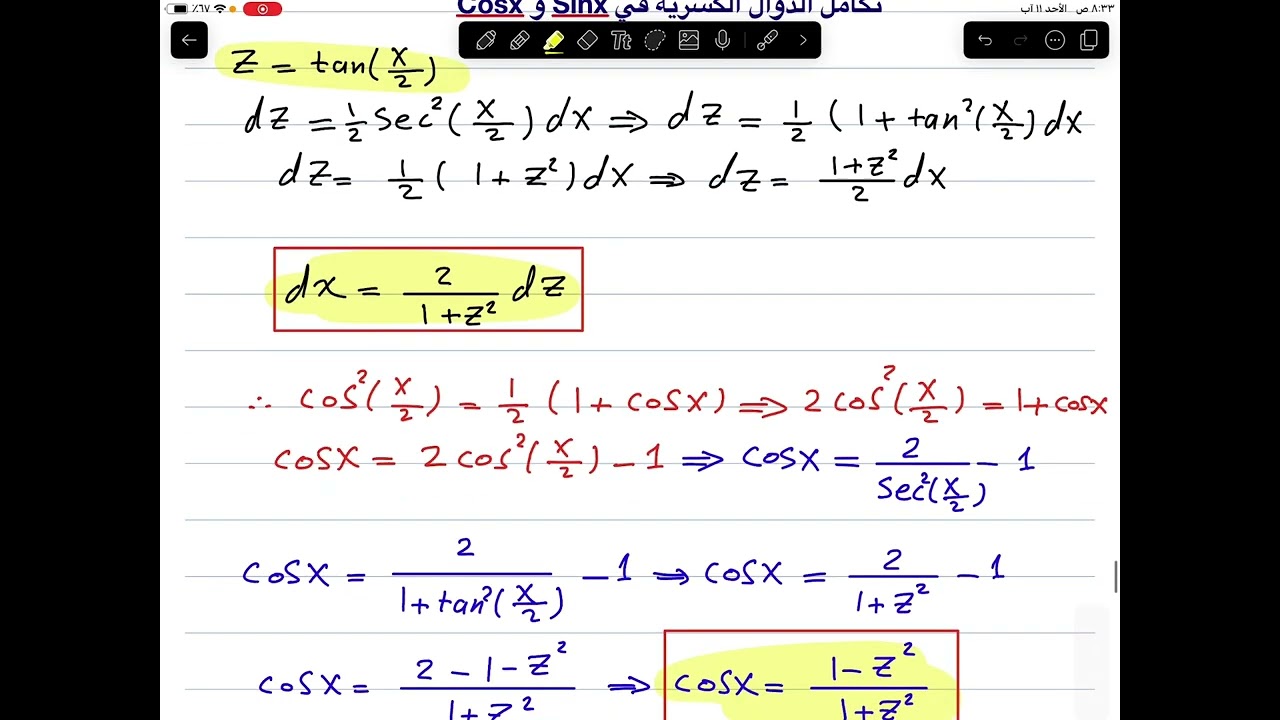 ٪٦٧ ٨:٣٣ ص الأحد ١١ آب
تكامل الدوال الكسرية في Sinx و Cosx
Tt
z = tan(x/2)
dz = 1/2 sec²(x/2) dx ⇒ dz = 1/2 (1 + tan²(x/2) dx
dz = 1/2 (1 + z²) dx ⇒ dz = (1+z²)/2 dx
dx = 2/(1+z²) dz
∴ cos²(x/2) = 1/2 (1 + cosx) ⇒ 2 cos²(x/2) = 1 + cosx
cosx = 2 cos²(x/2) - 1 ⇒ cosx = 2/sec²(x/2) - 1
cosx = 2/(1 + tan²(x/2)) - 1 ⇒ cosx = 2/(1+z²) - 1
cosx = (2 - 1 - z²)/(1+z²) ⇒ cosx = (1 - z²)/(1+z²)